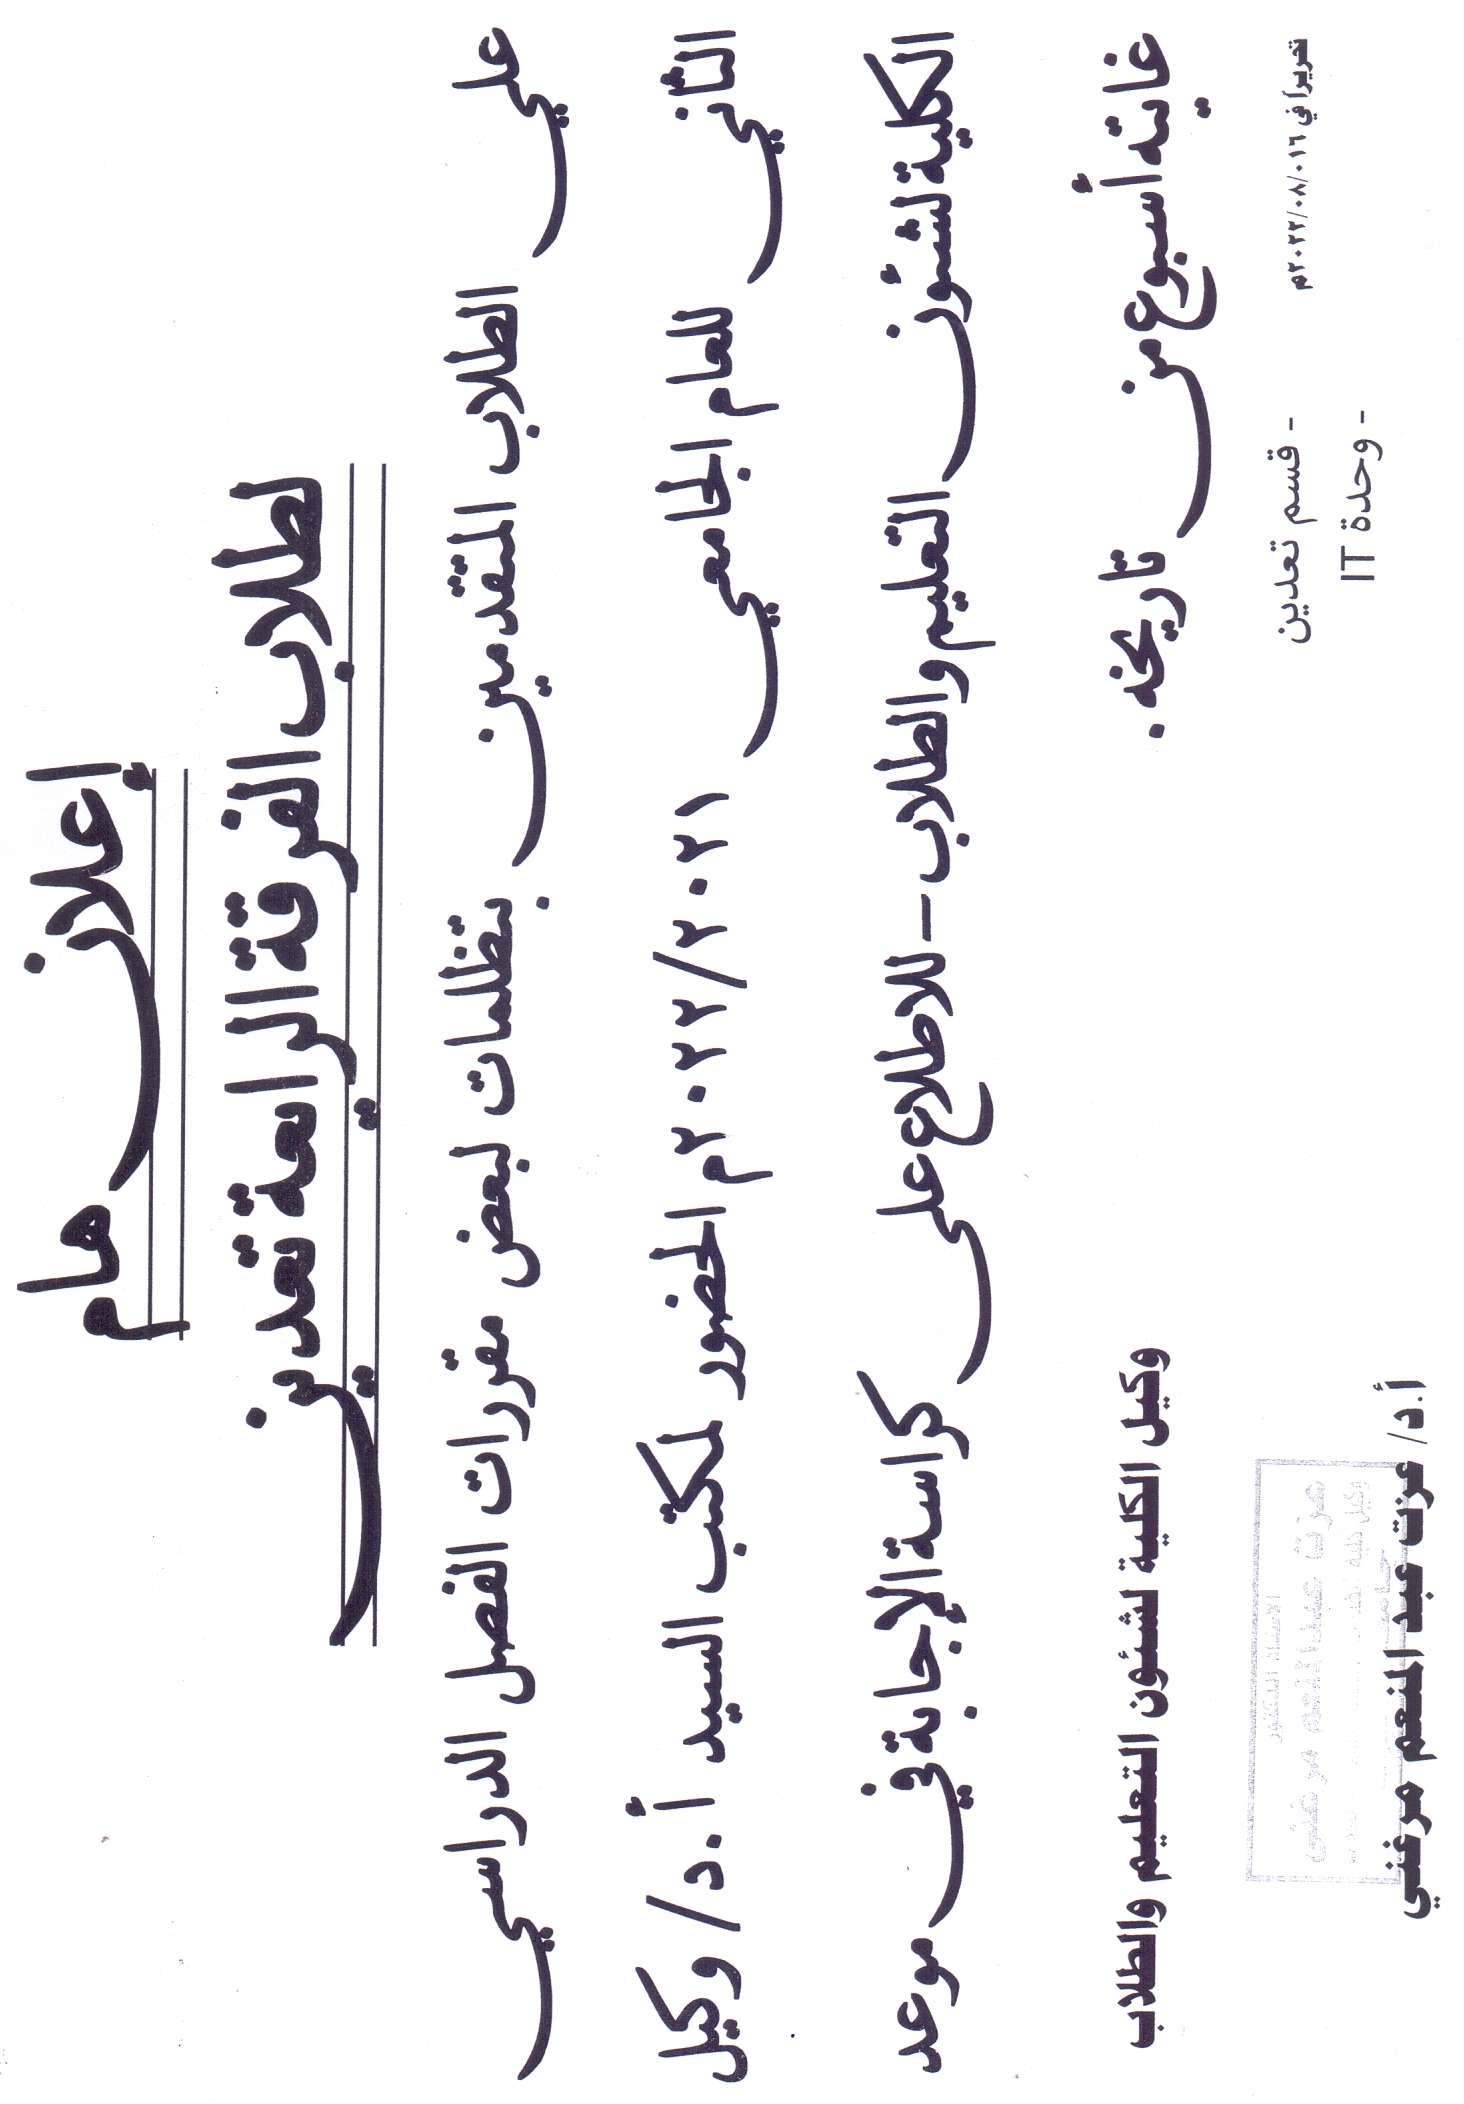 إعلان هام
لطلاب الفرقة الرابعة تعدين
على الطلاب المتقدمين بتظلمات لبعض مقررات الفصل الدراسي
الثاني للعام الجامعي ٢٠٢٢/٢٠٢١م الحضور لمكتب السيد أ.د/ وكيل
الكلية لشئون التعليم والطلاب – للاطلاع على كراسة الإجابة في موعد
غايته أسبوع من تاريخه .
تحريراً في ٠١٦/٠٨/٢٠٢٢م
وكيل الكلية لشئون التعليم والطلاب
- قسم تعدين
- وحدة IT
الاستاذ الدكتور
عزت عبد المنعم مرغني
وكيل كلية
أ.د/ عزت عبد المنعم مرغني